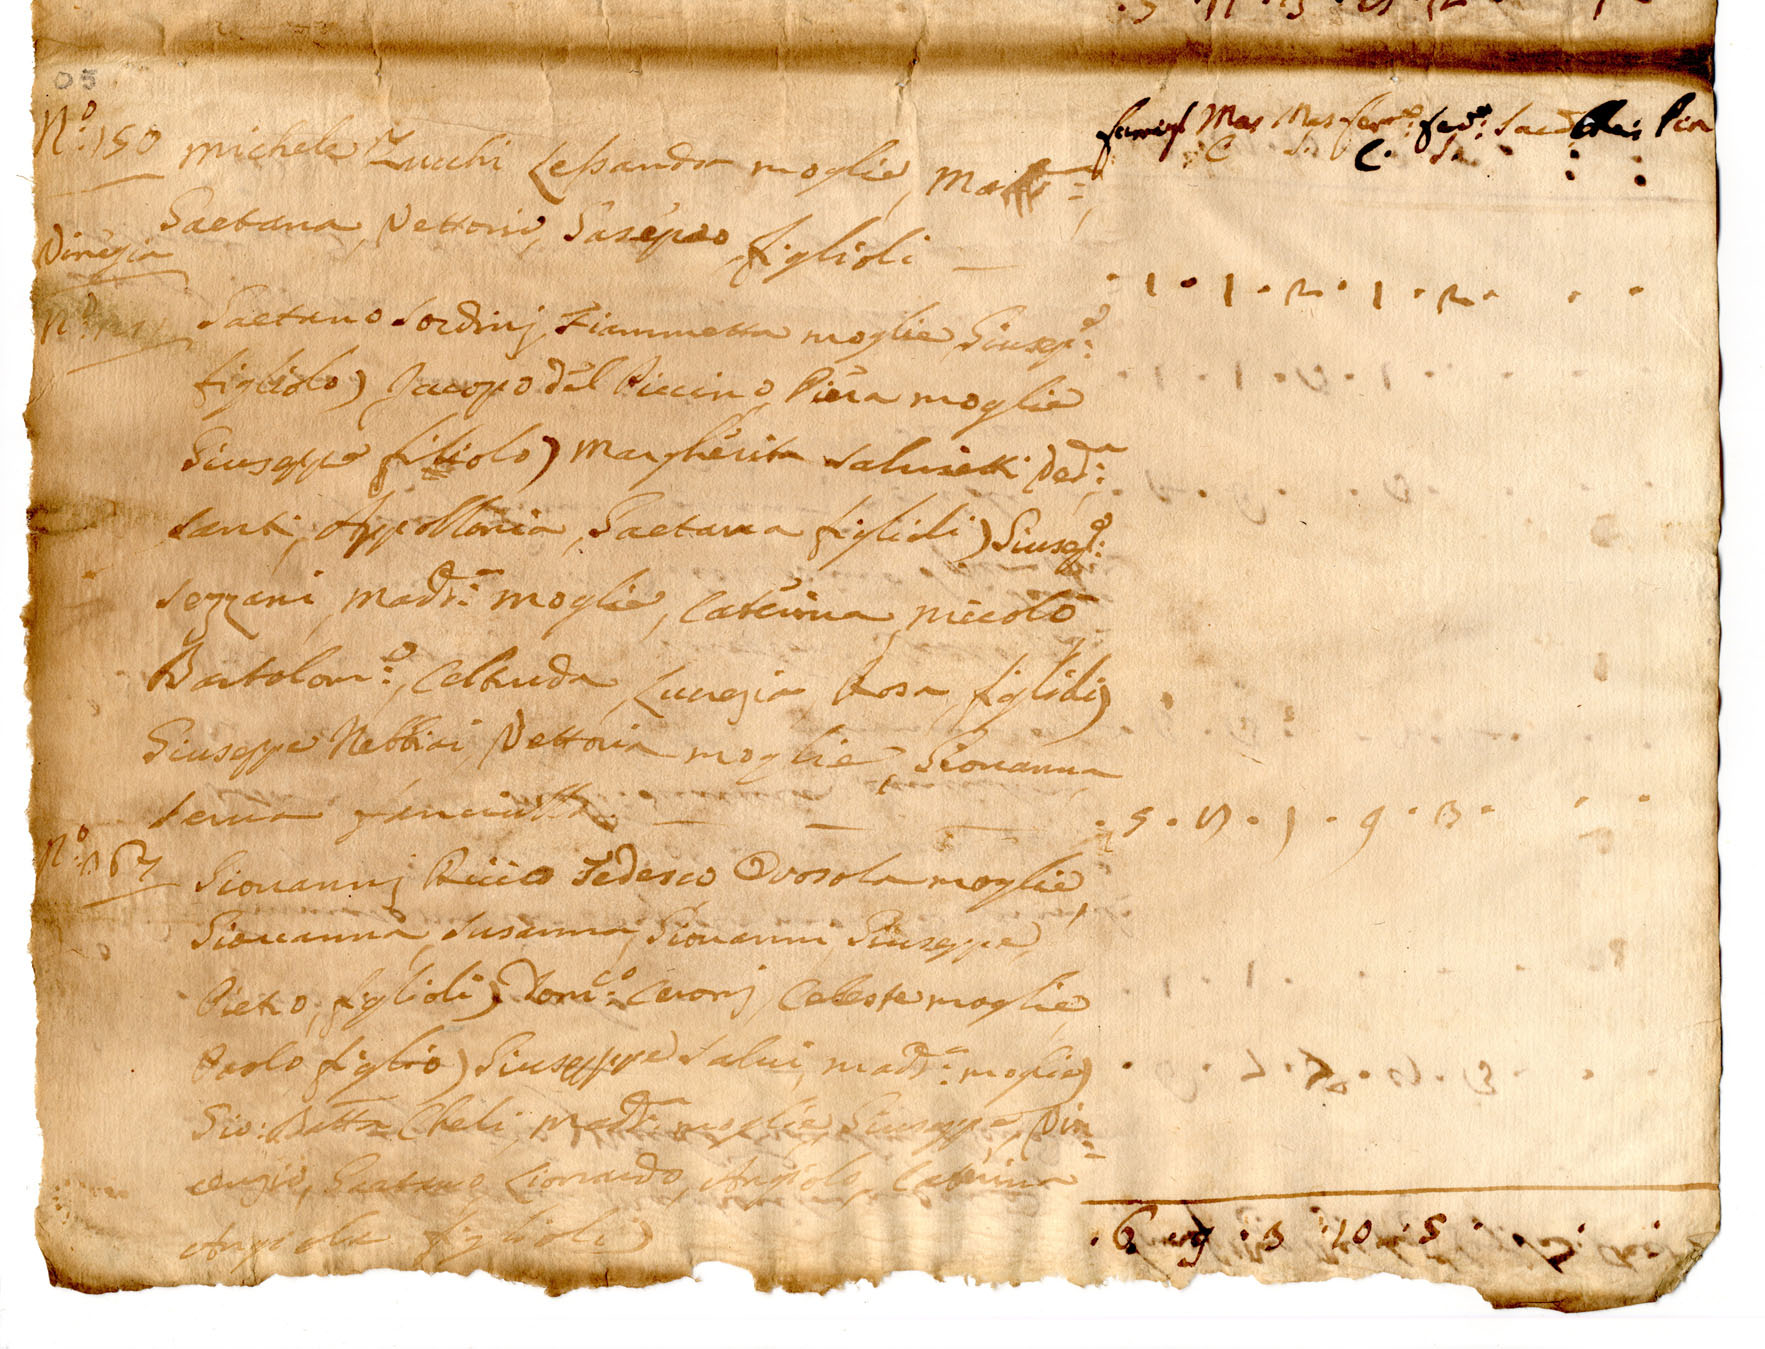 05
famigl Mas Mas fem.e fem.e Sacer Pin
C S. C. S.
N.o 150 Michele Zucchi Lessandra moglie,
Gaetana, Vettorio, Gasepeo figlioli —
Vinezia
· 1 · 1 · 2 · 1 · 2 ·
N.o Gaetano Sordinj, Fiammetta moglie, Giusep.e
figliolo) Jacopo del Piccino, Piera moglie
Giuseppe figliolo) Margherita Salvietti Ved.a
Santi, Appollonia, Gaetana figlioli) Giusep.e
Sezzani, Madd.a moglie, Caterina, Niccolò
Bartolom.o, Celtruda, Lucrezia Rosa, figlioli)
Giuseppe Nebbiai, Vettoria moglie, Giovanna
Serva fanciulla — — —
· 5 · 5 · 1 · 9 · 3 ·
N.o 167 Giovannj Riccio Tedesco Orosola moglie,
Giovanna, Susanna, Giovanni, Giuseppe,
Pietro, figlioli) Dom.co Ceronj, Celeste moglie,
Paolo figlio) Giuseppe Salvi, Madd.a moglie)
Gio: Batta Cheli, Madd.a moglie, Giuseppe, Vin=
cenzio, Gaetano, Lionardo, Angiolo, Caterina
Angiola figlioli)
· 6 · 3 · 10 · 5 ·